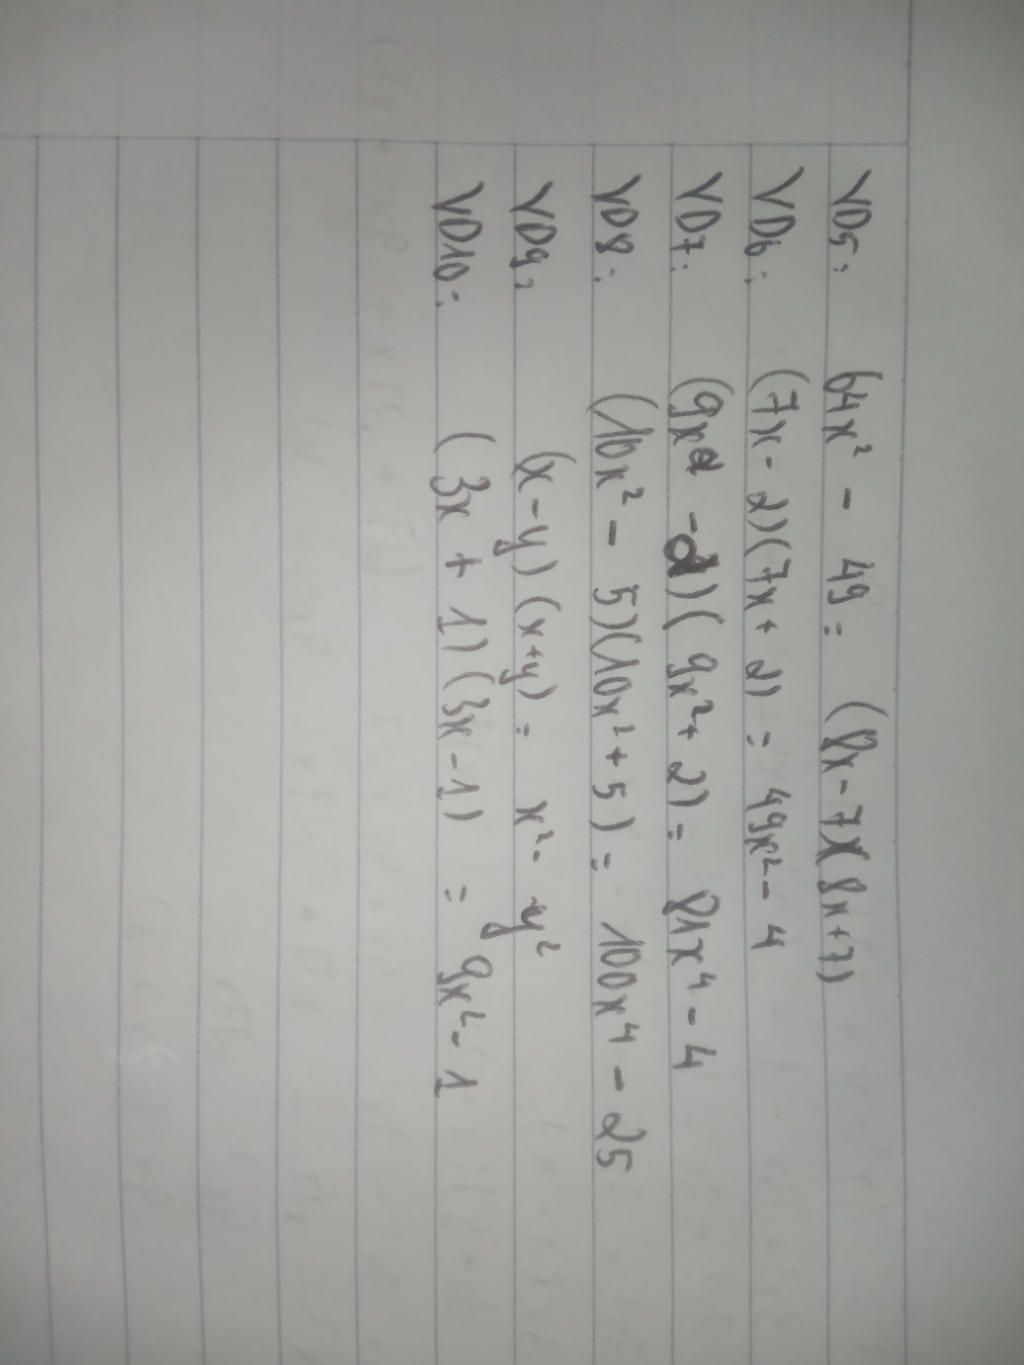 VD5: 64x² - 49 = (8x - 7)(8x + 7)
VD6: (7x - 2)(7x + 2) = 49x² - 4
VD7: (9x² - 2)(9x² + 2) = 81x⁴ - 4
VD8: (10x² - 5)(10x² + 5) = 100x⁴ - 25
VD9: (x - y)(x + y) = x² - y²
VD10: (3x + 1)(3x - 1) = 9x² - 1